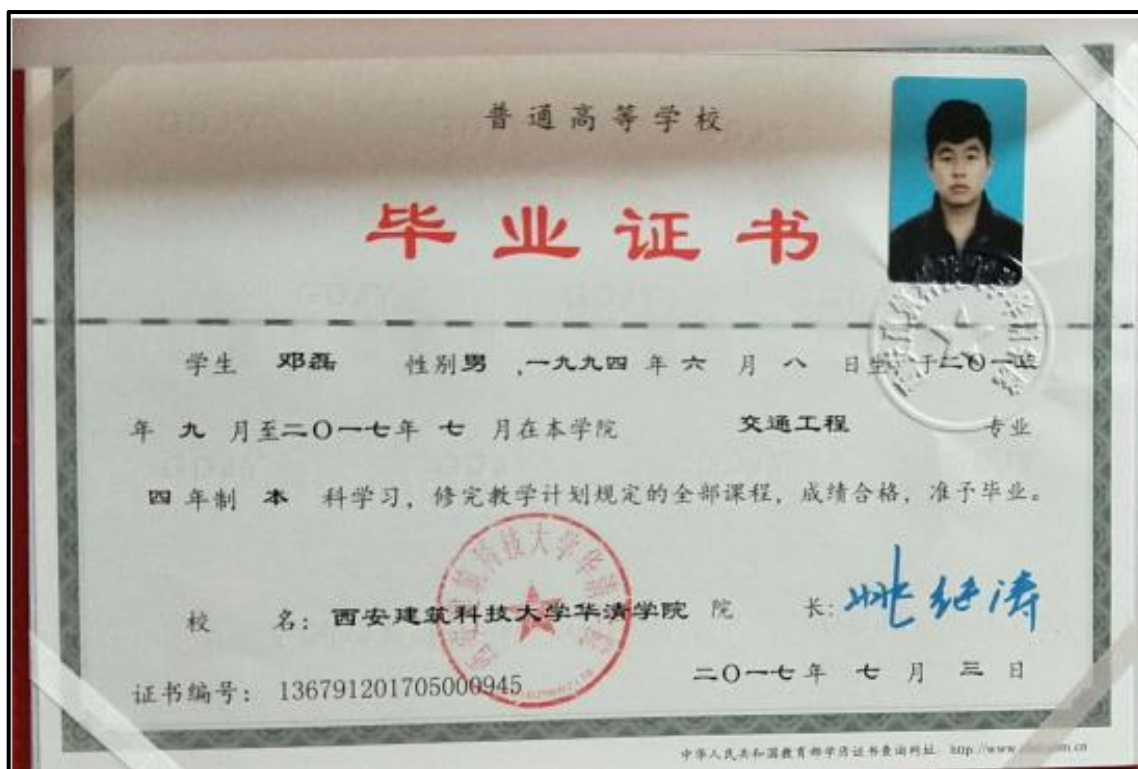 普通高等学校
毕业证书
学生 邓磊 性别男,一九九四年六月八日生,于二〇一
年九月至二〇一七年七月在本学院 交通工程 专业
四年制 本 科学习,修完教学计划规定的全部课程,成绩合格,准予毕业。
校 名:西安建筑科技大学华清学院 院 长:姚继涛
二〇一七年七月三日
证书编号:136791201705000945
中华人民共和国教育部学历证书查询网址 http://www